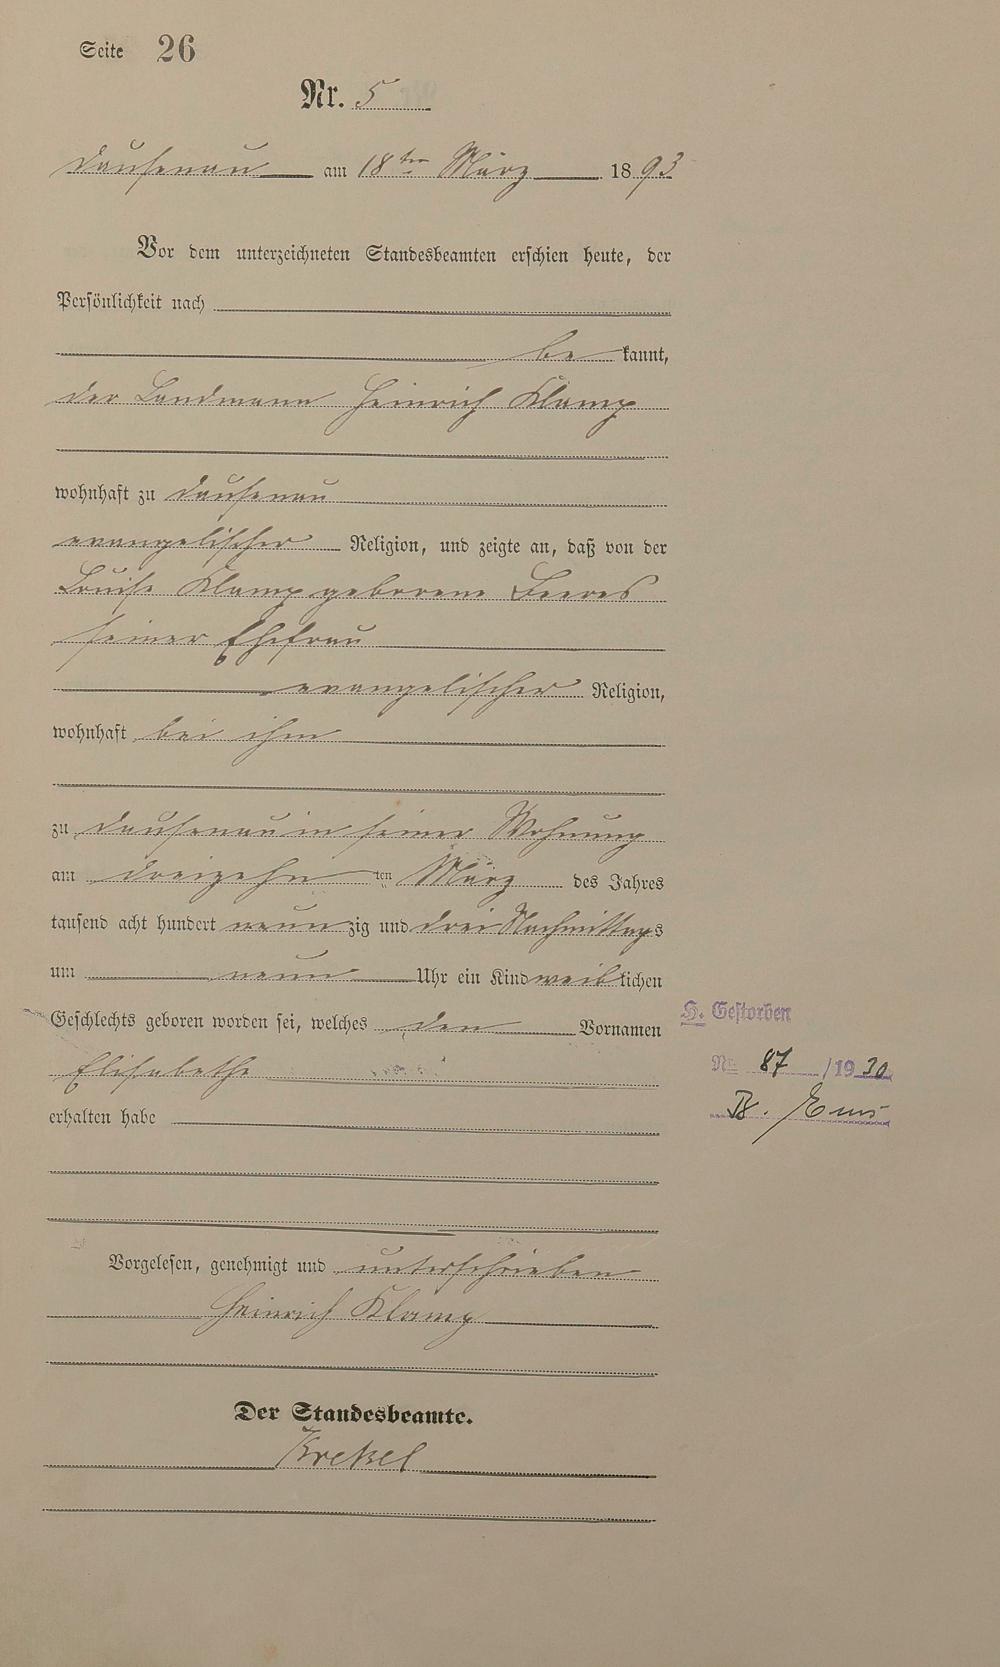 Seite 26
Nr. 5
Dausenau am 18ten März 1893
Vor dem unterzeichneten Standesbeamten erschien heute, der
Persönlichkeit nach
bekannt,
der Landmann Heinrich Klamp
wohnhaft zu Dausenau
evangelischer Religion, und zeigte an, daß von der
Louise Klamp geborene Beeres
seiner Ehefrau
evangelischer Religion,
wohnhaft bei ihm
zu Dausenau in seiner Wohnung
am dreizehnten März des Jahres
tausend acht hundert neunzig und drei Nachmittags
um neun Uhr ein Kind weiblichen
Geschlechts geboren worden sei, welches den Vornamen
Elisabethe
erhalten habe
Vorgelesen, genehmigt und unterschrieben
Heinrich Klamp
Der Standesbeamte.
Krekel
H. Gestorben
Nr. 87/1930
B. Ems